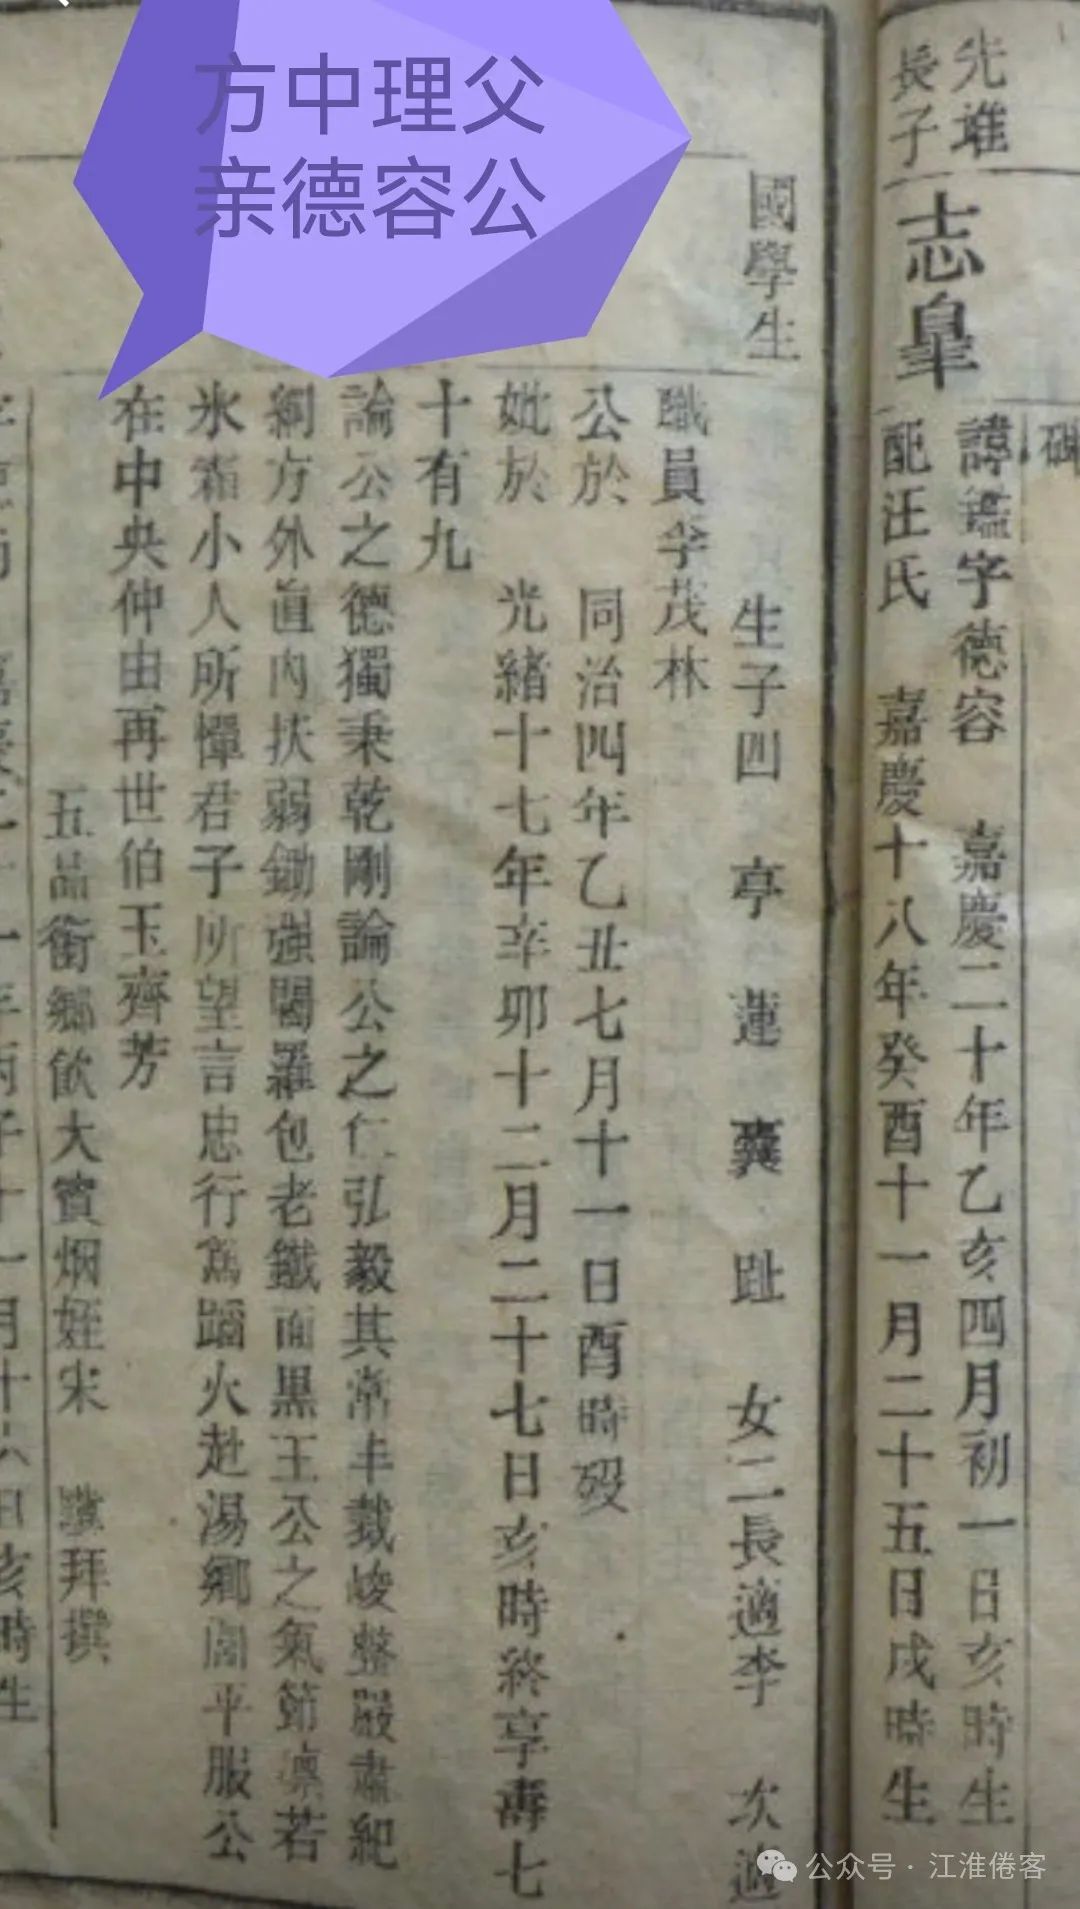 方中理父
亲德容公
碑
先堆
長子
志臯
諱鑑字德容 嘉慶二十年乙亥四月初一日亥時生
配汪氏 嘉慶十八年癸酉十一月二十五日戌時生
國學生
生子四 亭 蓮 冀 趾 女二長適李 次適
職員李茂林
公於 同治四年乙丑七月十一日酉時歿
妣於 光緒十七年辛卯十二月二十七日亥時終享壽七
十有九
論公之德獨秉乾剛論公之仁弘毅其常丰裁峻整嚴肅紀
綱方外直內扶弱鋤強閻羅包老鐵面黒王公之氣節凛若
氷霜小人所憚君子所望言忠行篤蹈火赴湯鄉閭平服公
在中央仲由再世伯玉齊芳
五品銜鄉飲大賓烟姪宋 拜撰
公众号·江淮倦客